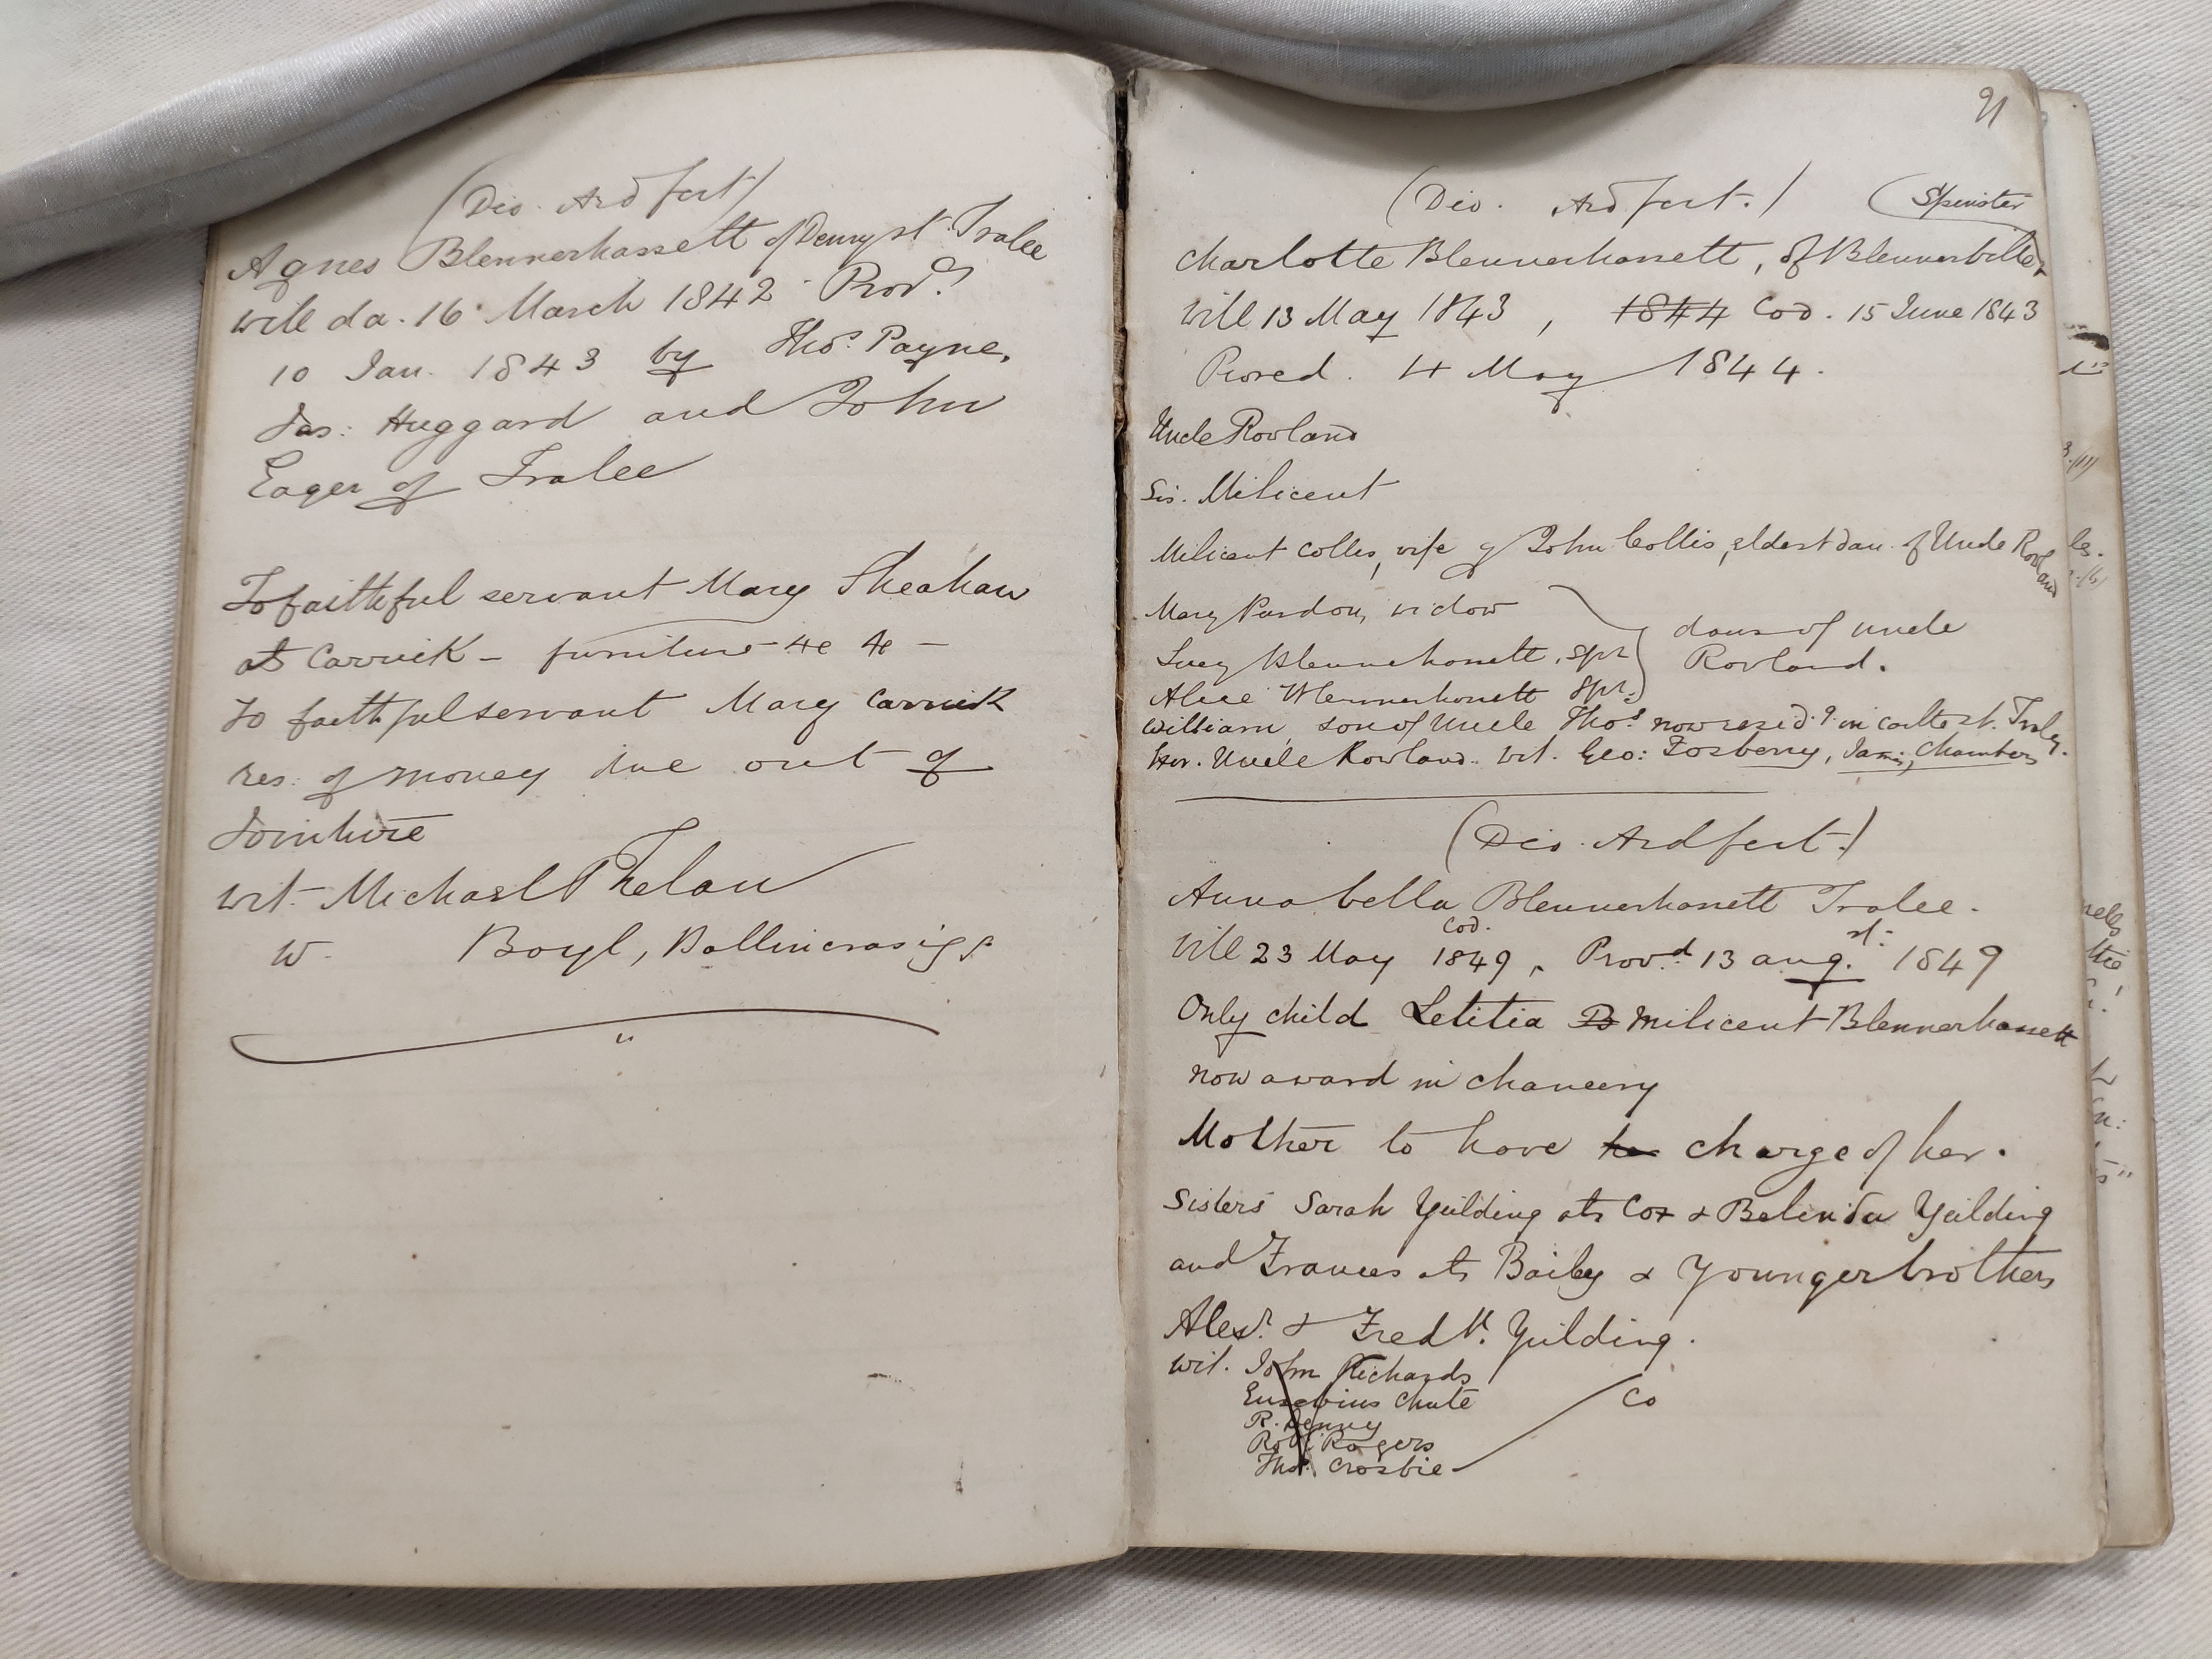 (Dio. Ardfert)
Agnes Blennerhassett of Denny st. Tralee
will da. 16 March 1842 Provd.
10 Jan. 1843 by Thos. Payne,
Jas: Huggard and John
Eager of Tralee
To faithful servant Mary Sheahan
at Carrick - furniture &c &c -
To faithful servant Mary Carrick
res: of money due out of
Jointure
wit. Michael Phelan
W. Boyl, Ballincrasigs
91
(Dio. Ardfert.) (Spinster
Charlotte Blennerhassett, of Blennerville,
Will 13 May 1843, 1844 Cod. 15 June 1843
Proved. 4 May 1844.
Uncle Rowland
Sis. Milicent
Milicent Colles, wife of John Collis, eldest dau. of Uncle Rowland
Mary Purdon, widow
Lucy Blennerhassett, spr daus of uncle
Alice Blennerhassett Spr. Rowland.
William, son of Uncle Thos. now resid.g. in castle st. Tralee.
Exr. Uncle Rowland. wit. Geo: Fosberry, Jams. Chambers
(Dio. Ardfert.)
Annabella Blennerhassett Tralee.
Will 23 May Cod. 1849, Provd. 13 augst. 1849
Only child Letitia B Milicent Blennerhassett
now a ward in chancery
Mother to have her charge of her.
Sisters Sarah Yielding als Cox & Belinda Yeilding
and Frances als Bailey & Younger brothers
Alexr. & Fredk. Yielding.
wit. John Richards
Eusebius Chute Co
R. Denny
Robt. Rogers
Thos. Crosbie